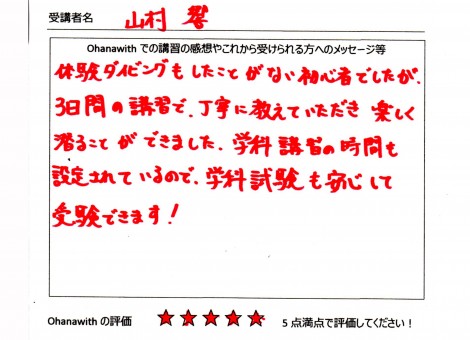 受講者名 山村 響
Ohanawith での講習の感想やこれから受けられる方へのメッセージ等
体験ダイビングもしたことがない初心者でしたが、
3日間の講習で、丁寧に教えていただき 楽しく
潜ることができました。学科講習の時間も
設定されているので、学科試験も安心して
受験できます!
Ohanawith の評価 ★★★★★ 5 点満点で評価してください!